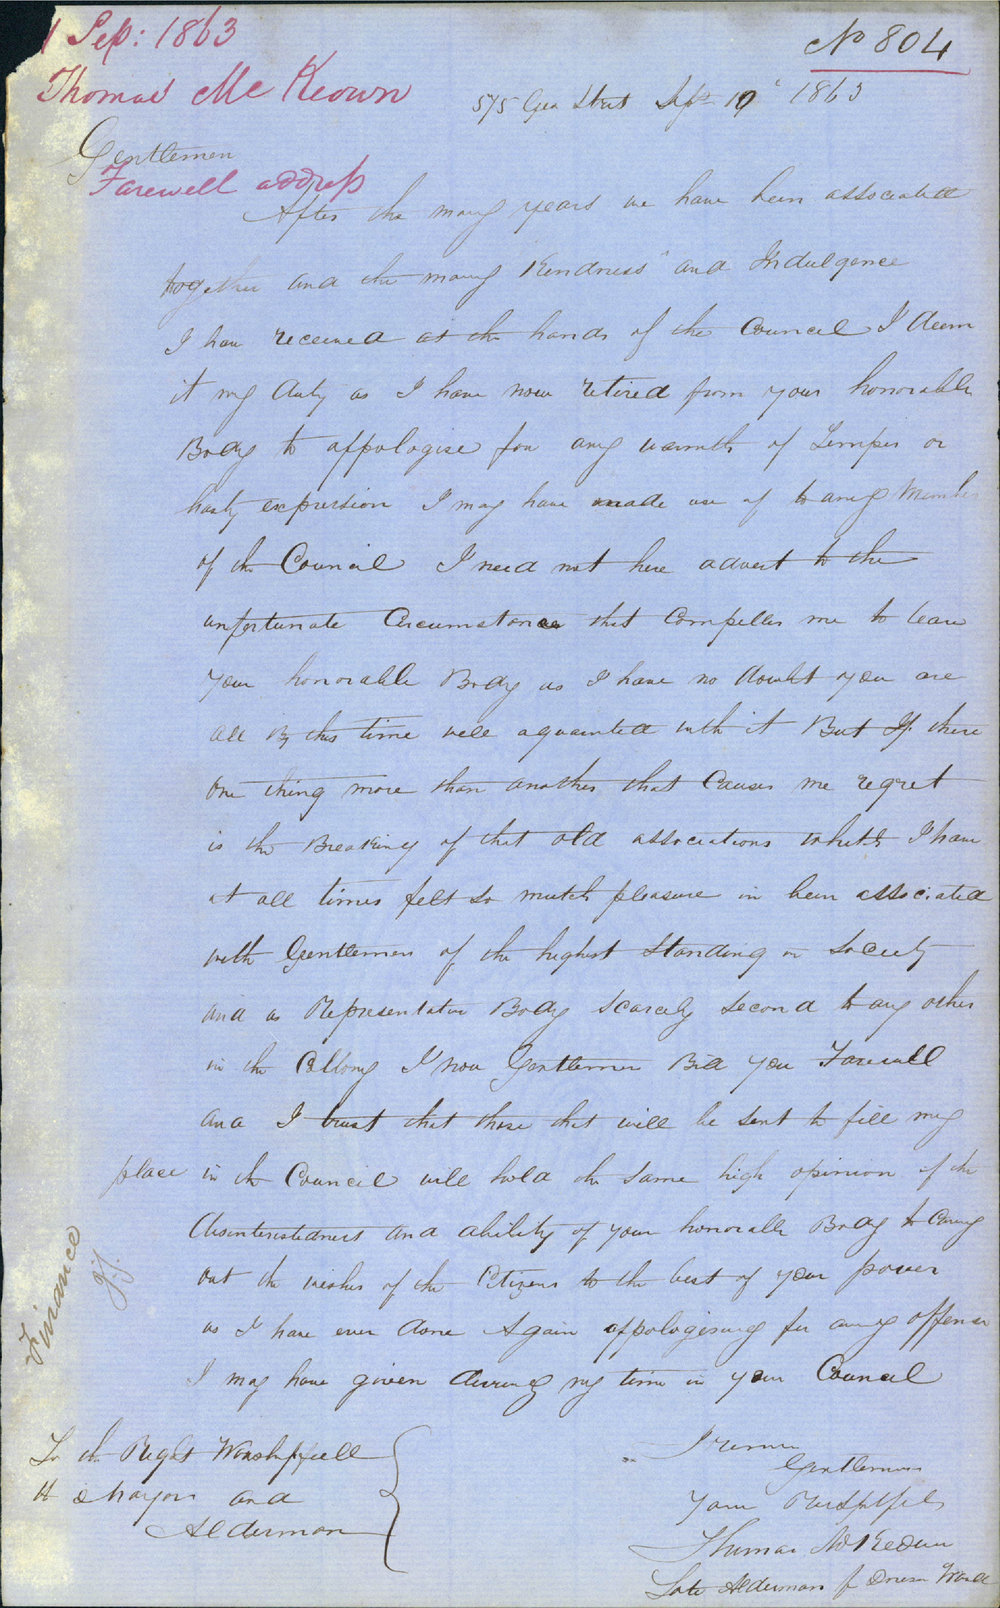 1 Sep: 1863
No 804
Thomas McKeown
575 Geo Street Sept 19 1863
Gentlemen
Farewell address
After the many years we have been associated
together and the many Kindness and Indulgence
I have received at the hands of the Council I deem
it my duty as I have now retired from your honorable
Body to appologise for any warmth of Temper or
hasty expression I may have made use of to any Member
of the Council I need not here advert to the
unfortunate Circumstance that Compelles me to leave
your honorable Body as I have no doubt you are
all By this time well aquainted with it But If there
one thing more than another that Causes me regret
is the Breaking of that old associations which I have
at all times felt so mutch pleasure in been associated
with Gentlemen of the highest Standing in Society
and as Representative Body Scarcely Second to any other
in the Collony I now Gentlemen Bid you Farewell
and I trust that those that will be Sent to fill my
place in the Council will hold the Same high opinion of the
disinterestedness and ability of your honorable Body to Carry
out the wishes of the Citizens to the best of your power
as I have ever done Again appologising for any offense
I may have given during my time in your Council
Finance
To the Right Worshipfull
the Mayor and
Alderman
I remain
Gentlemen
Your Respectfull
Thomas McKeown
Late Alderman for Ward